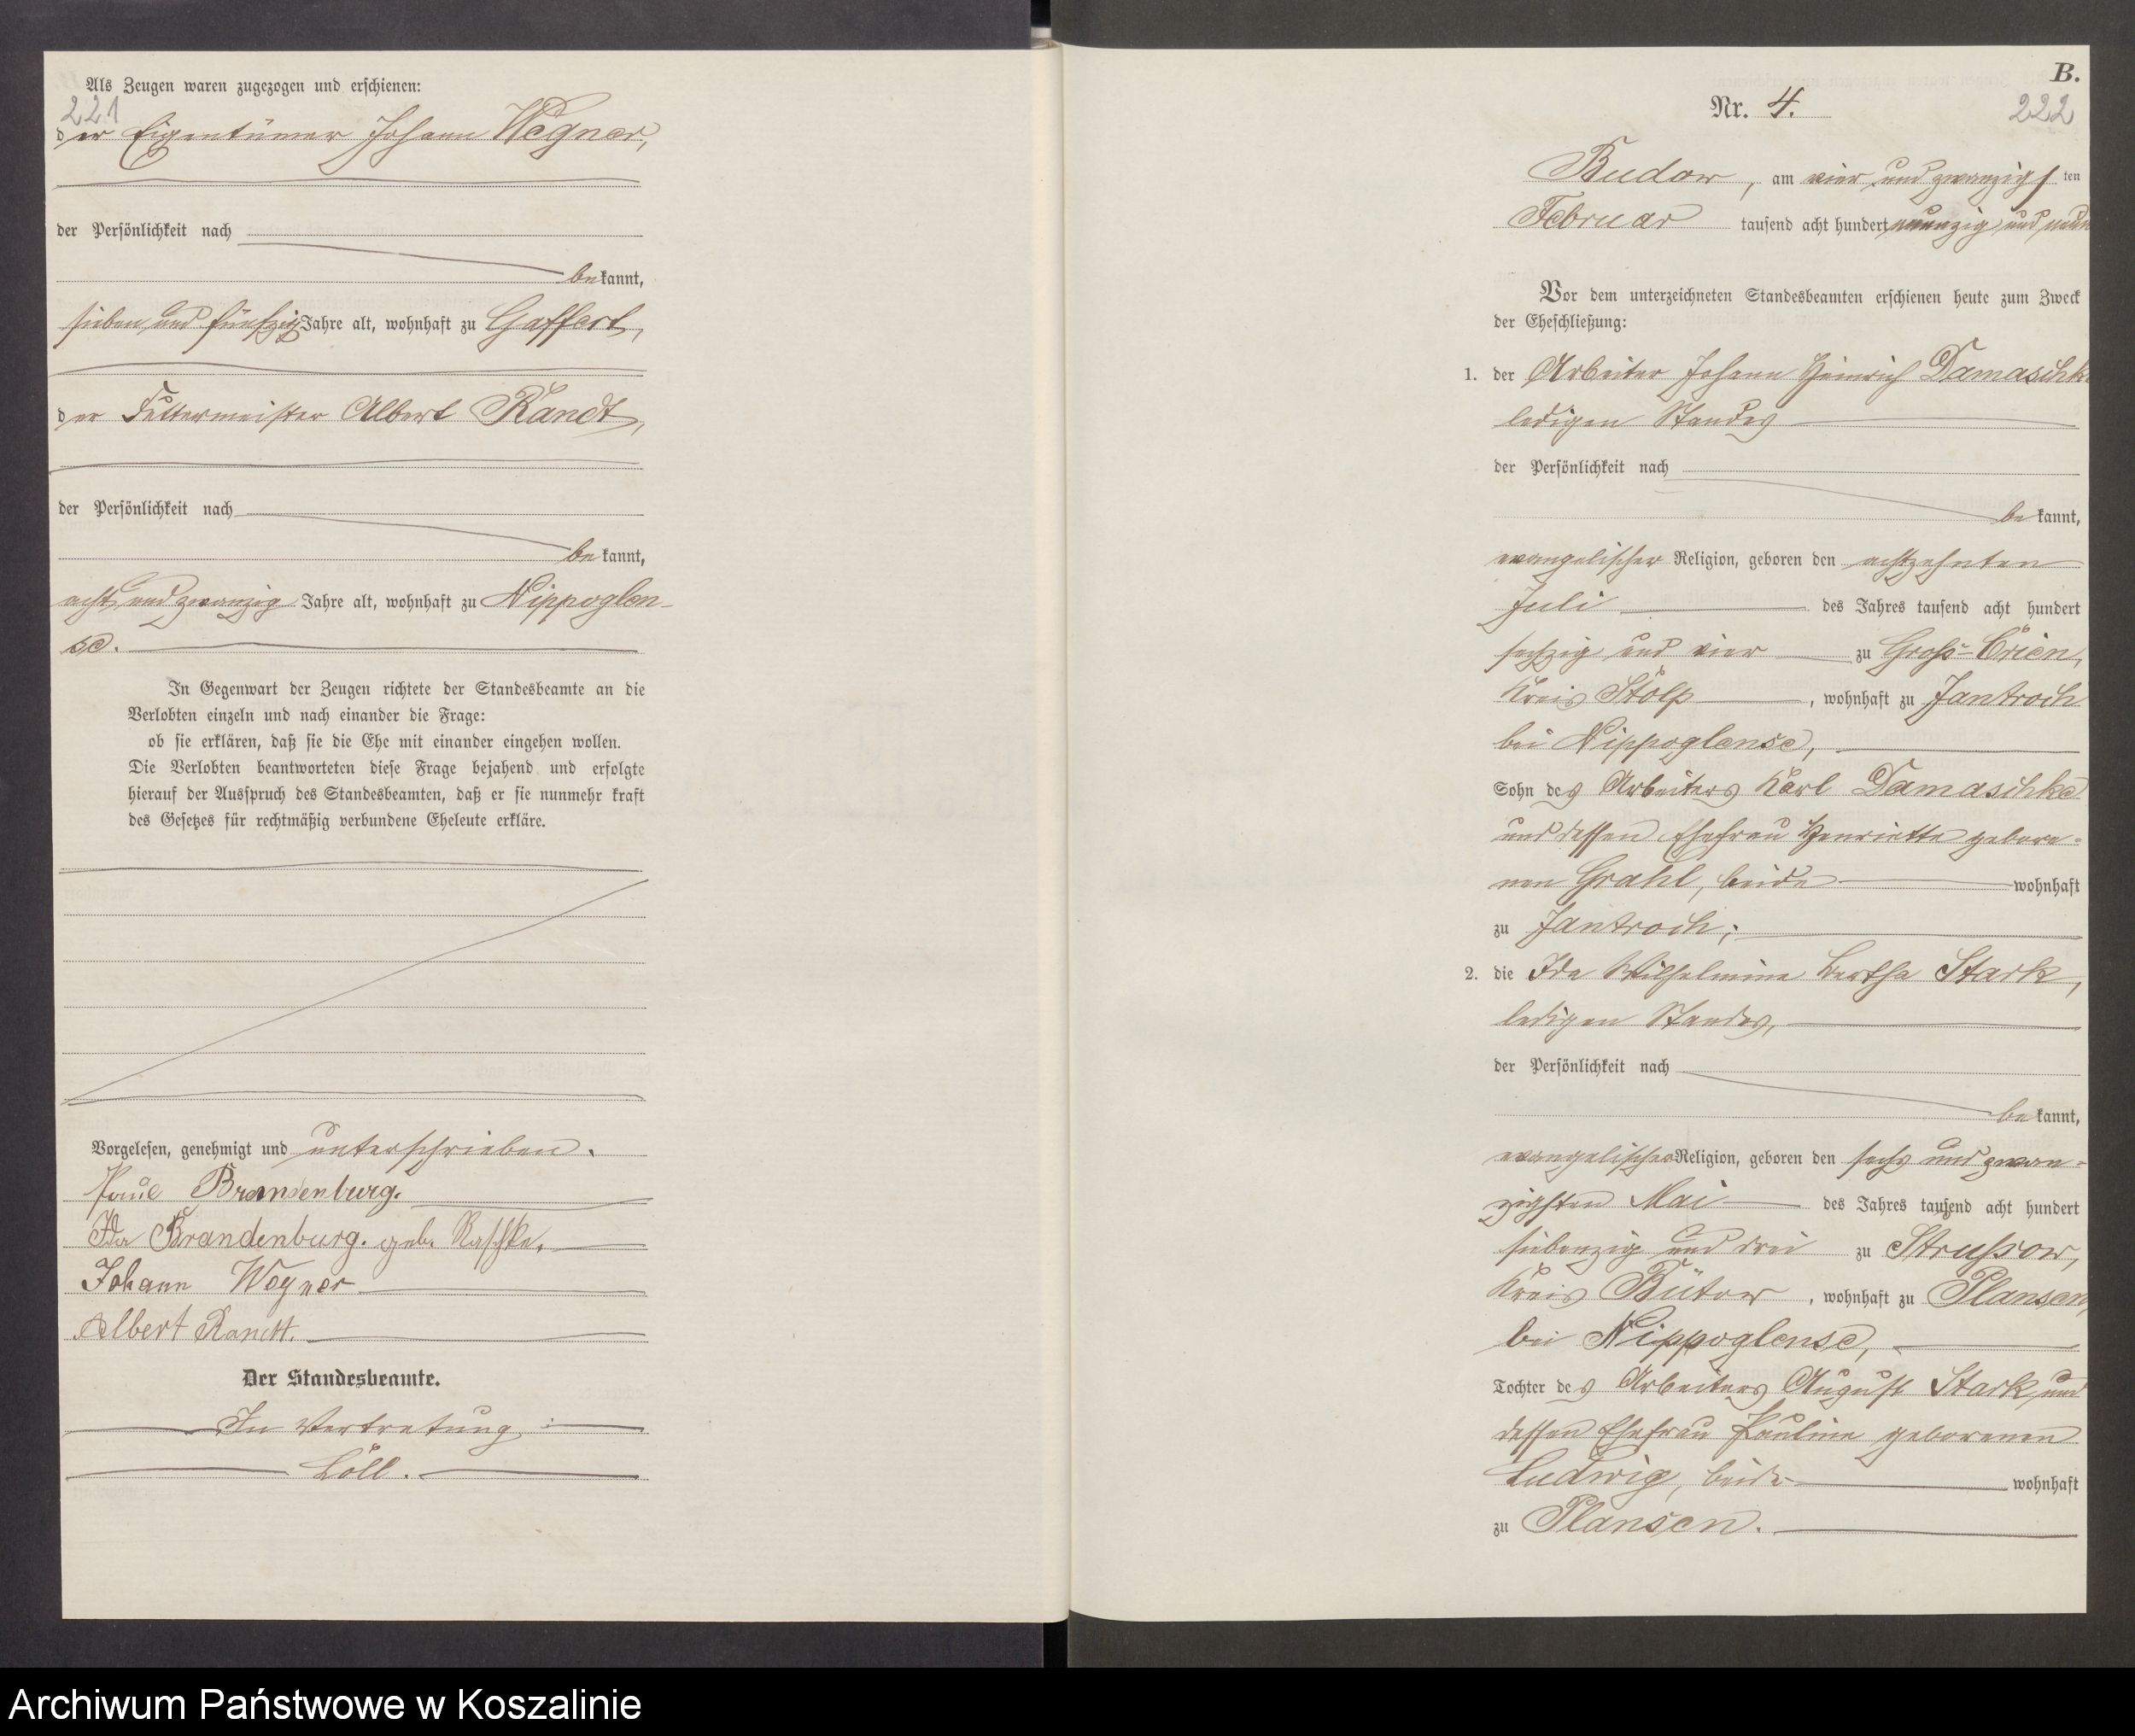 Als Zeugen waren zugezogen und erschienen:
221
der Eigentümer Johann Wegner,
der Persönlichkeit nach
bekannt,
sieben und fünfzig Jahre alt, wohnhaft zu Gaffert,
der Futtermeister Albert Randt,
der Persönlichkeit nach
bekannt,
acht und zwanzig Jahre alt, wohnhaft zu Nippoglen-
se.
In Gegenwart der Zeugen richtete der Standesbeamte an die
Verlobten einzeln und nach einander die Frage:
ob sie erklären, daß sie die Ehe mit einander eingehen wollen.
Die Verlobten beantworteten diese Frage bejahend und erfolgte
hierauf der Ausspruch des Standesbeamten, daß er sie nunmehr kraft
des Gesetzes für rechtmäßig verbundene Eheleute erkläre.
Vorgelesen, genehmigt und unterschrieben.
Paul Brandenburg.
Ida Brandenburg. geb. Raschke.
Johann Wegner
Albert Randt.
Der Standesbeamte.
In Vertretung:
Löll.
B.
Nr. 4.
222
Budow, am vier und zwanzigsten
Februar tausend acht hundert neunzig und neun
Vor dem unterzeichneten Standesbeamten erschienen heute zum Zweck
der Eheschließung:
1. der Arbeiter Johann Heinrich Damaschke
ledigen Standes
der Persönlichkeit nach
bekannt,
evangelischer Religion, geboren den achtzehnten
Juli des Jahres tausend acht hundert
sechzig und vier zu Groß-Crien,
Kreis Stolp, wohnhaft zu Jantroch
bei Nippoglense,
Sohn des Arbeiters Karl Damaschke
und dessen Ehefrau Henriette gebore-
nen Grahl, beide wohnhaft
zu Jantroch;
2. die Ida Wilhelmine Bertha Stark,
ledigen Standes,
der Persönlichkeit nach
bekannt,
evangelischer Religion, geboren den sechs und zwan-
zigsten Mai des Jahres tausend acht hundert
siebenzig und drei zu Strussow,
Kreis Bütow, wohnhaft zu Plansen,
bei Nippoglense,
Tochter des Arbeiters August Stark und
dessen Ehefrau Pauline geborenen
Ludwig, beide wohnhaft
zu Plansen.
Archiwum Państwowe w Koszalinie